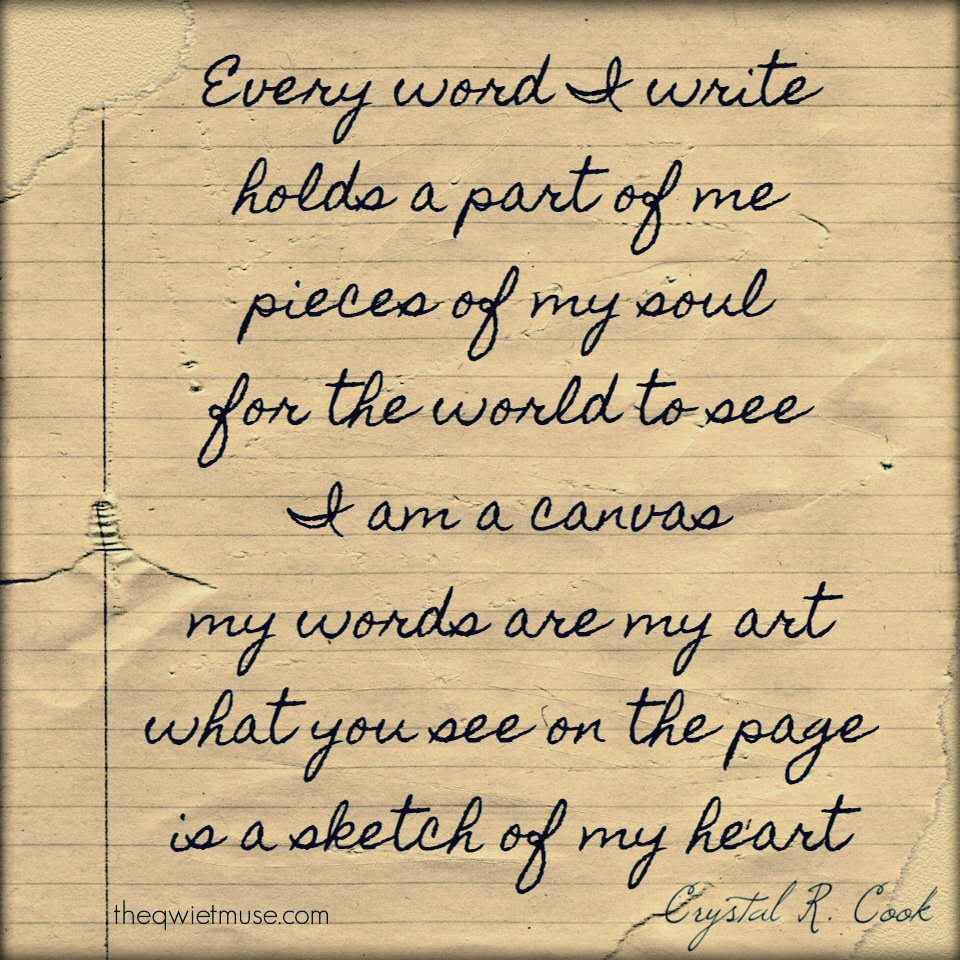 Every word I write
holds a part of me
pieces of my soul
for the world to see
I am a canvas
my words are my art
what you see on the page
is a sketch of my heart
theqwietmuse.com
Crystal R. Cook